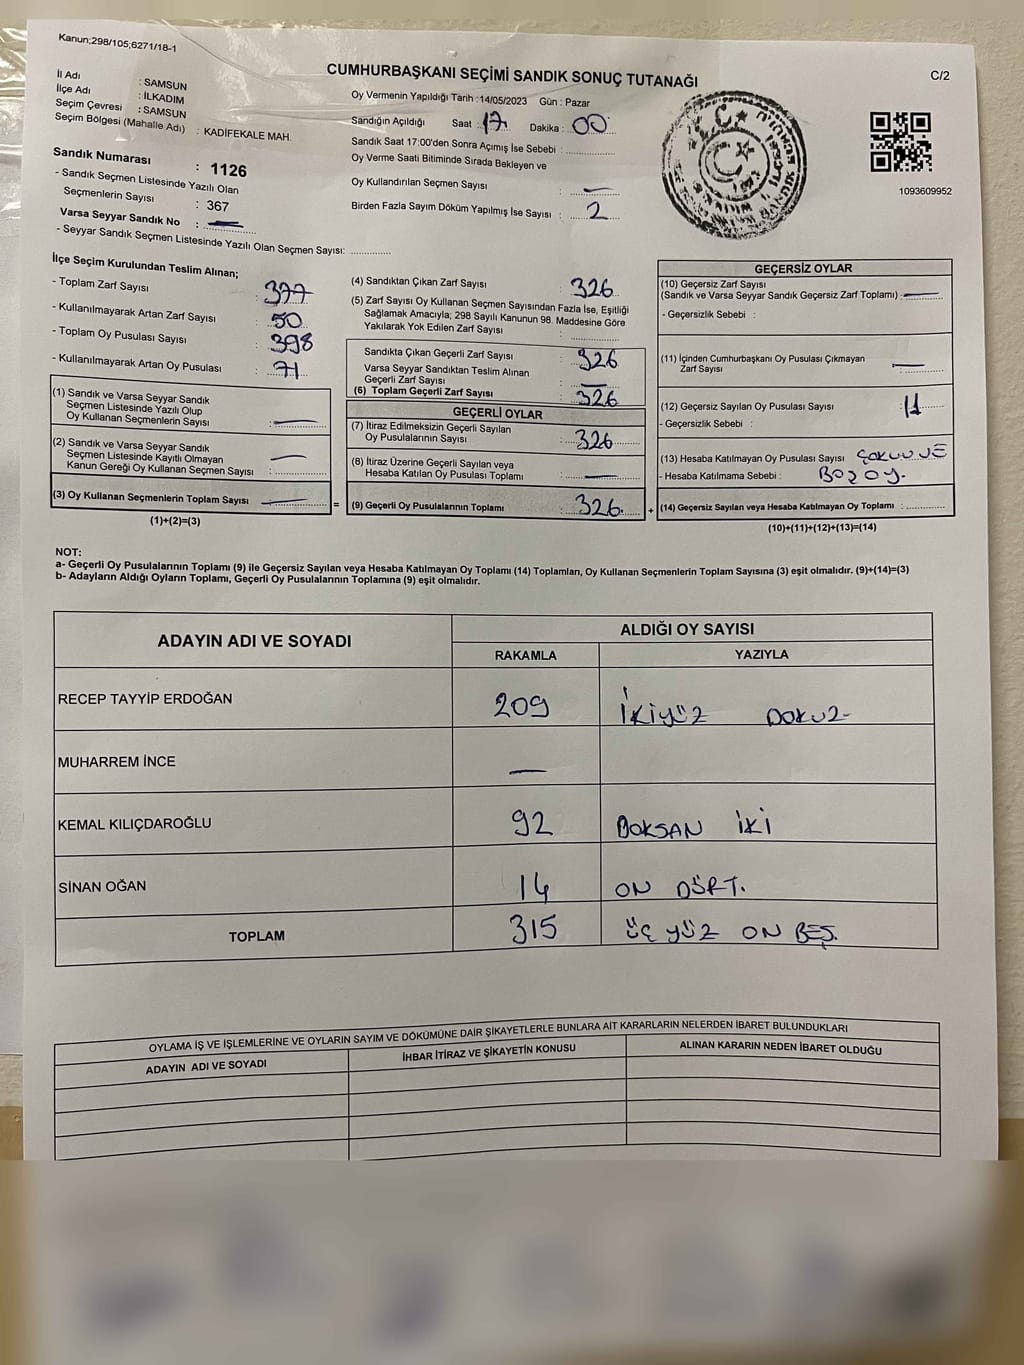 Kanun;298/105,6271/18-1
CUMHURBAŞKANI SEÇİMİ SANDIK SONUÇ TUTANAĞI
C/2
İl Adı : SAMSUN
İlçe Adı : İLKADIM
Seçim Çevresi : SAMSUN
Seçim Bölgesi (Mahalle Adı) : KADİFEKALE MAH.
Sandık Numarası : 1126
- Sandık Seçmen Listesinde Yazılı Olan
Seçmenlerin Sayısı : 367
Varsa Seyyar Sandık No : —
- Seyyar Sandık Seçmen Listesinde Yazılı Olan Seçmen Sayısı: ..............
Oy Vermenin Yapıldığı Tarih :14/05/2023 Gün : Pazar
Sandığın Açıldığı Saat : 17 Dakika : 00
Sandık Saat 17:00'den Sonra Açımış İse Sebebi : ..............
Oy Verme Saati Bitiminde Sırada Bekleyen ve
Oy Kullandırılan Seçmen Sayısı : —
Birden Fazla Sayım Döküm Yapılmış İse Sayısı : 2
1093609952
İlçe Seçim Kurulundan Teslim Alınan;
- Toplam Zarf Sayısı : 377
- Kullanılmayarak Artan Zarf Sayısı : 50
- Toplam Oy Pusulası Sayısı : 398
- Kullanılmayarak Artan Oy Pusulası : 71
(1) Sandık ve Varsa Seyyar Sandık
Seçmen Listesinde Yazılı Olup
Oy Kullanan Seçmenlerin Sayısı : —
(2) Sandık ve Varsa Seyyar Sandık
Seçmen Listesinde Kayıtlı Olmayan
Kanun Gereği Oy Kullanan Seçmen Sayısı : —
(3) Oy Kullanan Seçmenlerin Toplam Sayısı —
(1)+(2)=(3)
=
(4) Sandıktan Çıkan Zarf Sayısı : 326
(5) Zarf Sayısı Oy Kullanan Seçmen Sayısından Fazla İse, Eşitliği
Sağlamak Amacıyla; 298 Sayılı Kanunun 98. Maddesine Göre
Yakılarak Yok Edilen Zarf Sayısı : ..............
Sandıkta Çıkan Geçerli Zarf Sayısı : 326
Varsa Seyyar Sandıktan Teslim Alınan
Geçerli Zarf Sayısı : —
(6) Toplam Geçerli Zarf Sayısı : 326
GEÇERLİ OYLAR
(7) İtiraz Edilmeksizin Geçerli Sayılan
Oy Pusulalarının Sayısı : 326
(8) İtiraz Üzerine Geçerli Sayılan veya
Hesaba Katılan Oy Pusulası Toplamı : —
(9) Geçerli Oy Pusulalarının Toplamı : 326.
+
GEÇERSİZ OYLAR
(10) Geçersiz Zarf Sayısı
(Sandık ve Varsa Seyyar Sandık Geçersiz Zarf Toplamı) : —
- Geçersizlik Sebebi :
(11) İçinden Cumhurbaşkanı Oy Pusulası Çıkmayan
Zarf Sayısı : —
(12) Geçersiz Sayılan Oy Pusulası Sayısı : 11
- Geçersizlik Sebebi :
(13) Hesaba Katılmayan Oy Pusulası Sayısı ÇOKLU VE
- Hesaba Katılmama Sebebi : BOZ OY.
(14) Geçersiz Sayılan veya Hesaba Katılmayan Oy Toplamı : ..............
(10)+(11)+(12)+(13)=(14)
NOT:
a- Geçerli Oy Pusulalarının Toplamı (9) ile Geçersiz Sayılan veya Hesaba Katılmayan Oy Toplamı (14) Toplamları, Oy Kullanan Seçmenlerin Toplam Sayısına (3) eşit olmalıdır. (9)+(14)=(3)
b- Adayların Aldığı Oyların Toplamı, Geçerli Oy Pusulalarının Toplamına (9) eşit olmalıdır.
ADAYIN ADI VE SOYADI ALDIĞI OY SAYISI
RAKAMLA YAZIYLA
RECEP TAYYİP ERDOĞAN 209 İKİYÜZ DOKUZ
MUHARREM İNCE —
KEMAL KILIÇDAROĞLU 92 DOKSAN İKİ
SİNAN OĞAN 14 ON DÖRT.
TOPLAM 315 ÜÇ YÜZ ON BEŞ.
OYLAMA İŞ VE İŞLEMLERİNE VE OYLARIN SAYIM VE DÖKÜMÜNE DAİR ŞİKAYETLERLE BUNLARA AİT KARARLARIN NELERDEN İBARET BULUNDUKLARI
ADAYIN ADI VE SOYADI İHBAR İTİRAZ VE ŞİKAYETİN KONUSU ALINAN KARARIN NEDEN İBARET OLDUĞU